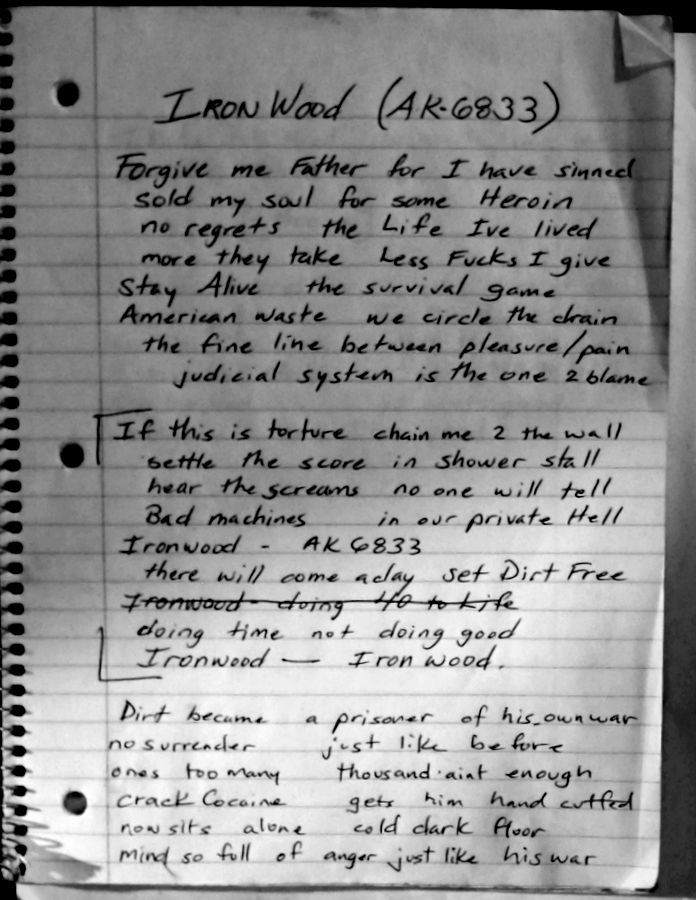 IRON WOOD (AK-6833)
Forgive me Father for I have sinned
sold my soul for some Heroin
no regrets the Life Ive lived
more they take Less Fucks I give
Stay Alive the survival game
American waste we circle the drain
the fine line between pleasure/pain
judicial system is the one 2 blame
If this is torture chain me 2 the wall
settle the score in shower stall
hear the screams no one will tell
Bad machines in our private Hell
Ironwood - AK 6833
there will come a day set Dirt Free
Ironwood - doing 40 to Life
doing time not doing good
Ironwood — Iron wood.
Dirt became a prisoner of his own war
no surrender just like before
ones too many thousand aint enough
crack Cocaine gets him hand cuffed
now sits alone cold dark floor
mind so full of anger just like his war